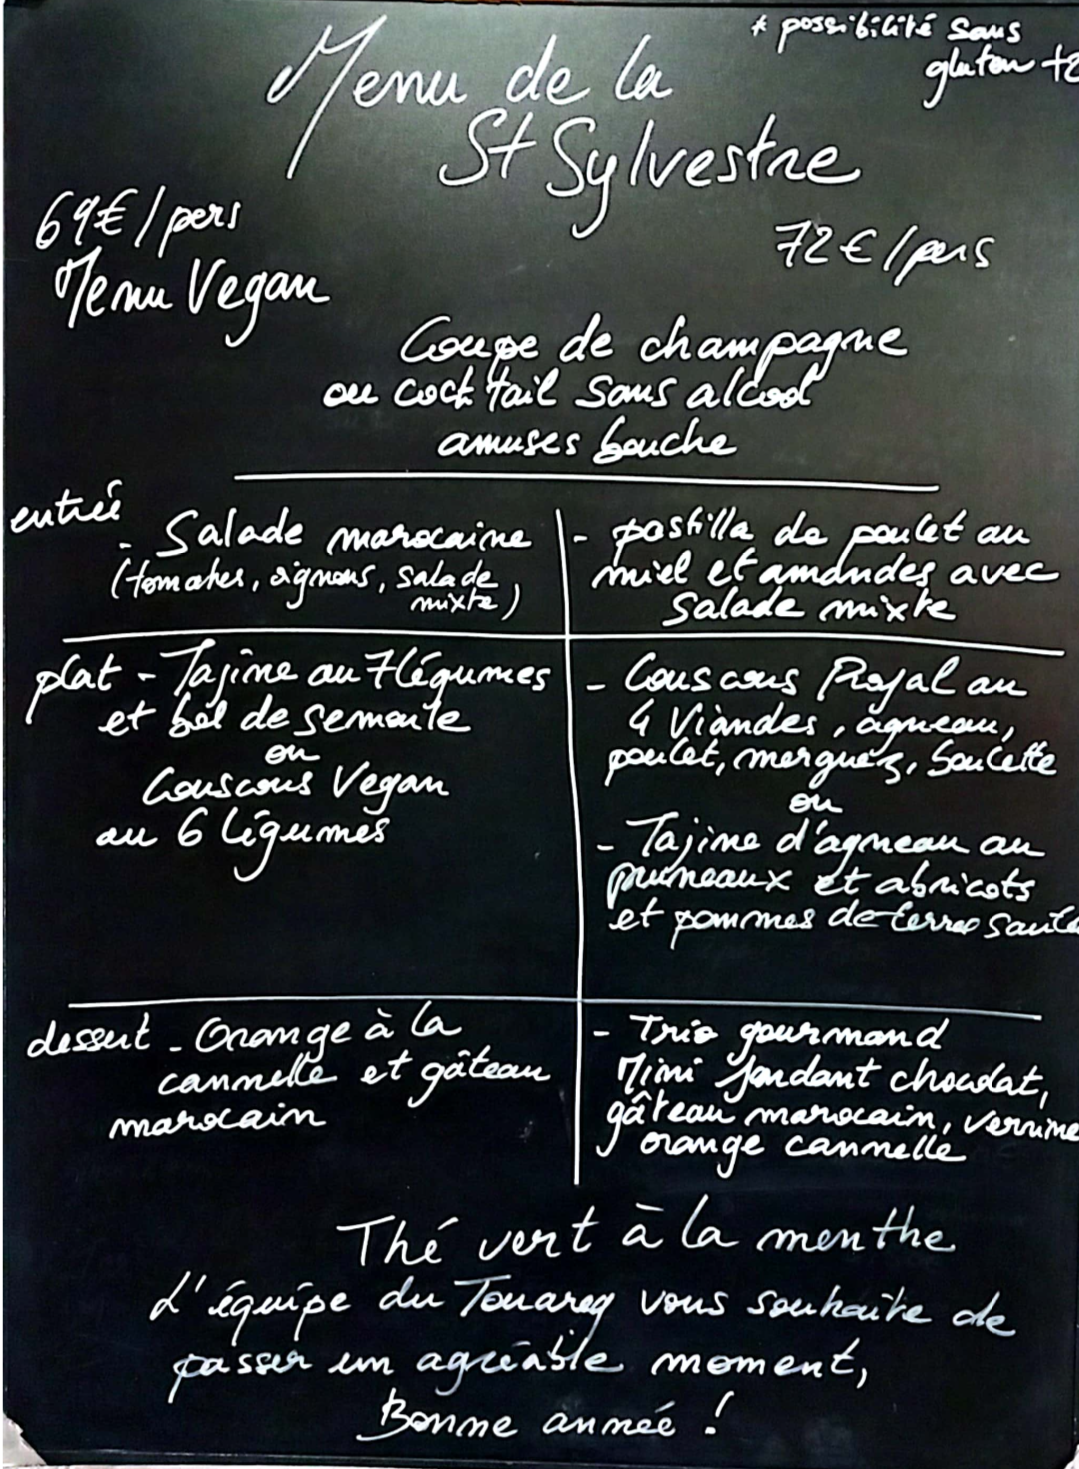 * possibilité sans
gluten +2
Menu de la
St Sylvestre
69€/pers
Menu Vegan
72€/pers
Coupe de champagne
ou cocktail sans alcool
amuses bouche
entrée
- Salade marocaine
(tomates, oignons, salade
mixte)
- pastilla de poulet au
miel et amandes avec
salade mixte
plat - Tajine au 7 légumes
et bol de semoule
ou
Couscous Vegan
au 6 légumes
- Couscous Royal au
4 Viandes, agneau,
poulet, merguez, boulette
ou
- Tajine d'agneau au
pruneaux et abricots
et pommes de terres saute
dessert - Orange à la
cannelle et gâteau
marocain
- Trio gourmand
Mini fondant chocolat,
gâteau marocain, verrine
orange cannelle
Thé vert à la menthe
L'équipe du Touareg vous souhaite de
passer un agréable moment,
Bonne année !